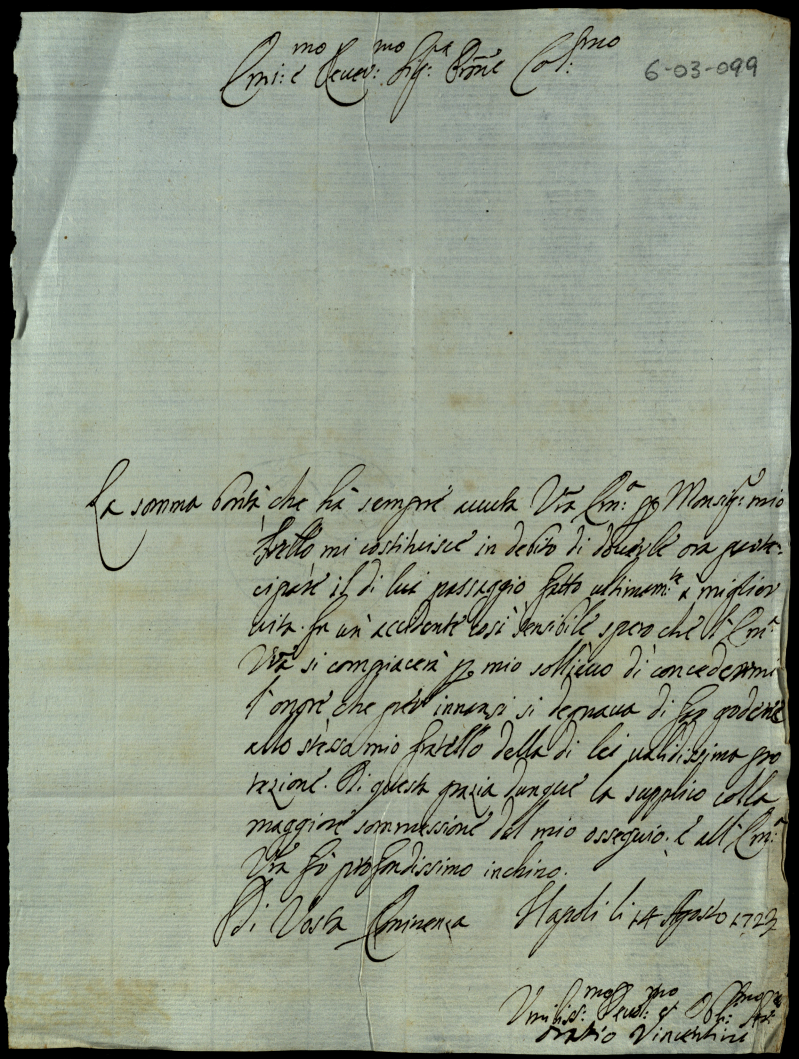 Emi:mo e Rever:mo Sig:ra Prōne Col:mo
6-03-099
La somma bontà che hà sempre auuta Vrā Em:a pp Monsig:r mio
frello mi costituisce in debito di douerle ora parte-
cipare il di lui passaggio fatto ultimam:te à miglior
uita. In un' accidente così sensibile spero che l'Em:a
Vrā si compiacerà p mio sollieuo di concedermi
l'onore che per innanzi si degnaua di far godere
allo stesso mio fratello della di lei ualidissima pro
tezione. Di questa grazia dunque la supplico colla
maggiore sommessione del mio ossequio. è all'Em:a
Vrā fò profondissimo inchino.
Di Vostra Eminenza Napoli li 14 Agosto 1723
Umiliss:mo Deuot:mo et Obl:mo
Oratio Vincentini